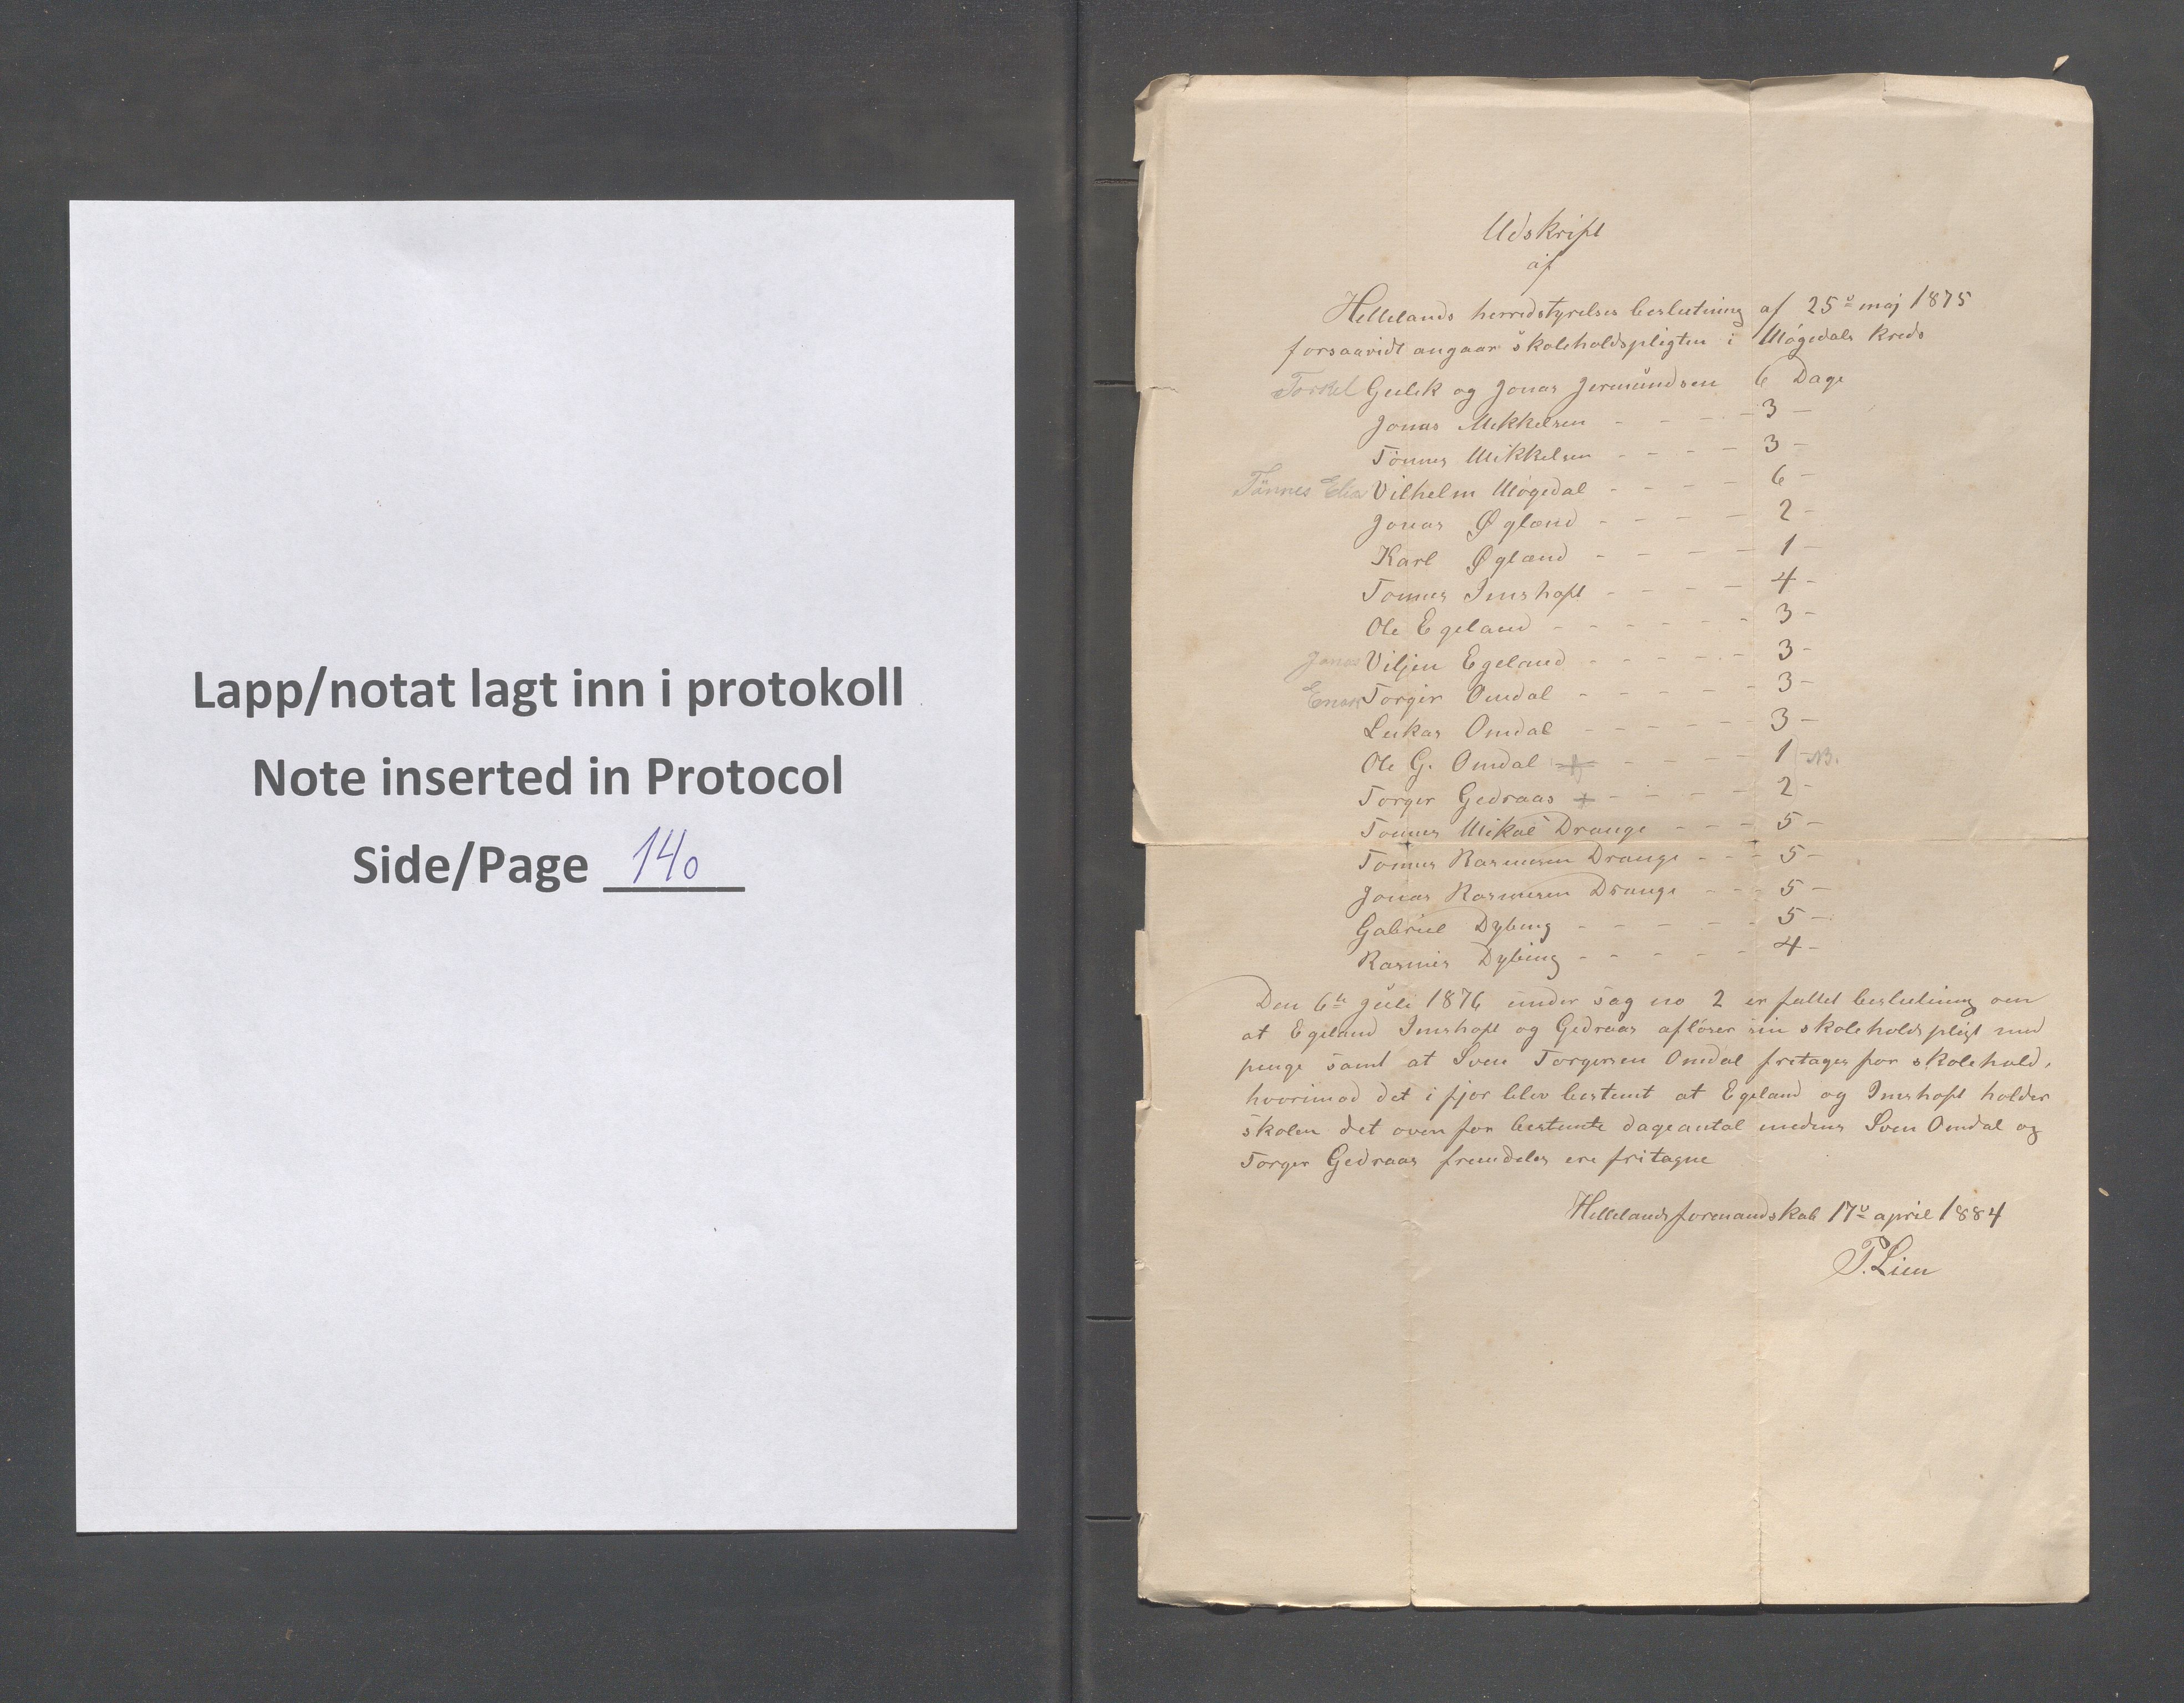 Lapp/notat lagt inn i protokoll
Note inserted in Protocol
Side/Page 140
Udskrift
af
Hellelands herredstyrelses beslutning af 25de maj 1875
forsaavidt angaar skoleholdspligten i Møgedals Kreds
Torkel Gulik og Jonas Jermundsen 6 Dage
Jonas Mikkelsen - - - - 3 -
Tönnes Mikkelsen - - - - 3 -
Tönnes Elia Vilhelm Møgedal - - - - 6 -
Jonas Øglænd - - - - 2 -
Karl Øglænd - - - - 1 -
Tönnes Imshoft - - - - 4 -
Ole Egeland - - - - - - 3 -
Jonas Viljen Egeland - - - - - 3 -
Enok Torger Omdal - - - - - 3 -
Lukas Omdal - - - - - 3 -
Ole G. Omdal - - - - 1 - NB.
Torger Gedraas - - - - 2 -
Tönnes Mikal Drange - - - 5 -
Tönnes Rasmusen Drange - - - 5 -
Jonas Rasmusen Drange - - - 5 -
Gabriel Dybing - - - - - - 5 -
Rasmus Dybing - - - - - - 4 -
Den 6te Juli 1876 under sag no 2 er fattet beslutning om
at Egeland Imshoft og Gedraas afløser sin skoleholdspligt med
penge samt at Sven Torgersen Omdal fritages for skolehold,
hvorimod det i fjor blev bestemt at Egeland og Imshoft holder
skolen det oven for bestemte dageantal medens Sven Omdal og
Torger Gedraas fremdeles ere fritagne
Hellelands formandskab 17de april 1884
T. Lien